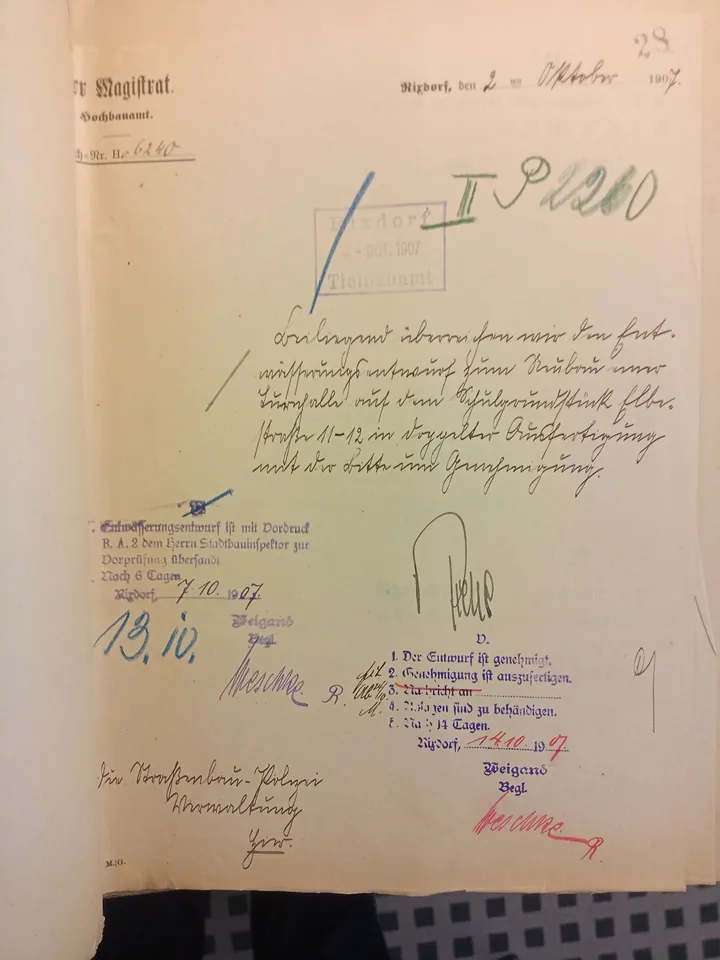 28
Der Magistrat.
Hochbauamt.
Rixdorf, den 2 ten Oktober 1907.
ch.-Nr. Ho 6240
II P 2260
Rixdorf
- OCT. 1907
Tiefbauamt
Beiliegend überreichen wir den Ent-
wässerungsentwurf zum Neubau einer
Turnhalle auf dem Schulgrundstück Elbe-
straße 11-12 in doppelter Ausfertigung
mit der Bitte um Genehmigung.
V.
Entwässerungsentwurf ist mit Vordruck
B. A. 2 dem Herrn Stadtbauinspektor zur
Vorprüfung übersandt
Nach 6 Tagen
Rixdorf, 7 10. 1907
Weigand
Begl.
Meschke R.
13. 10.
V.
1. Der Entwurf ist genehmigt.
2. Genehmigung ist auszufertigen.
3. Nachricht an
4. Anlagen sind zu behändigen.
5. Nach 14 Tagen.
Rixdorf, 14 10. 1907.
Weigand
Begl.
Meschke.
R.
die Straßenbau-Polizei
Verwaltung
Hier.
M./G.